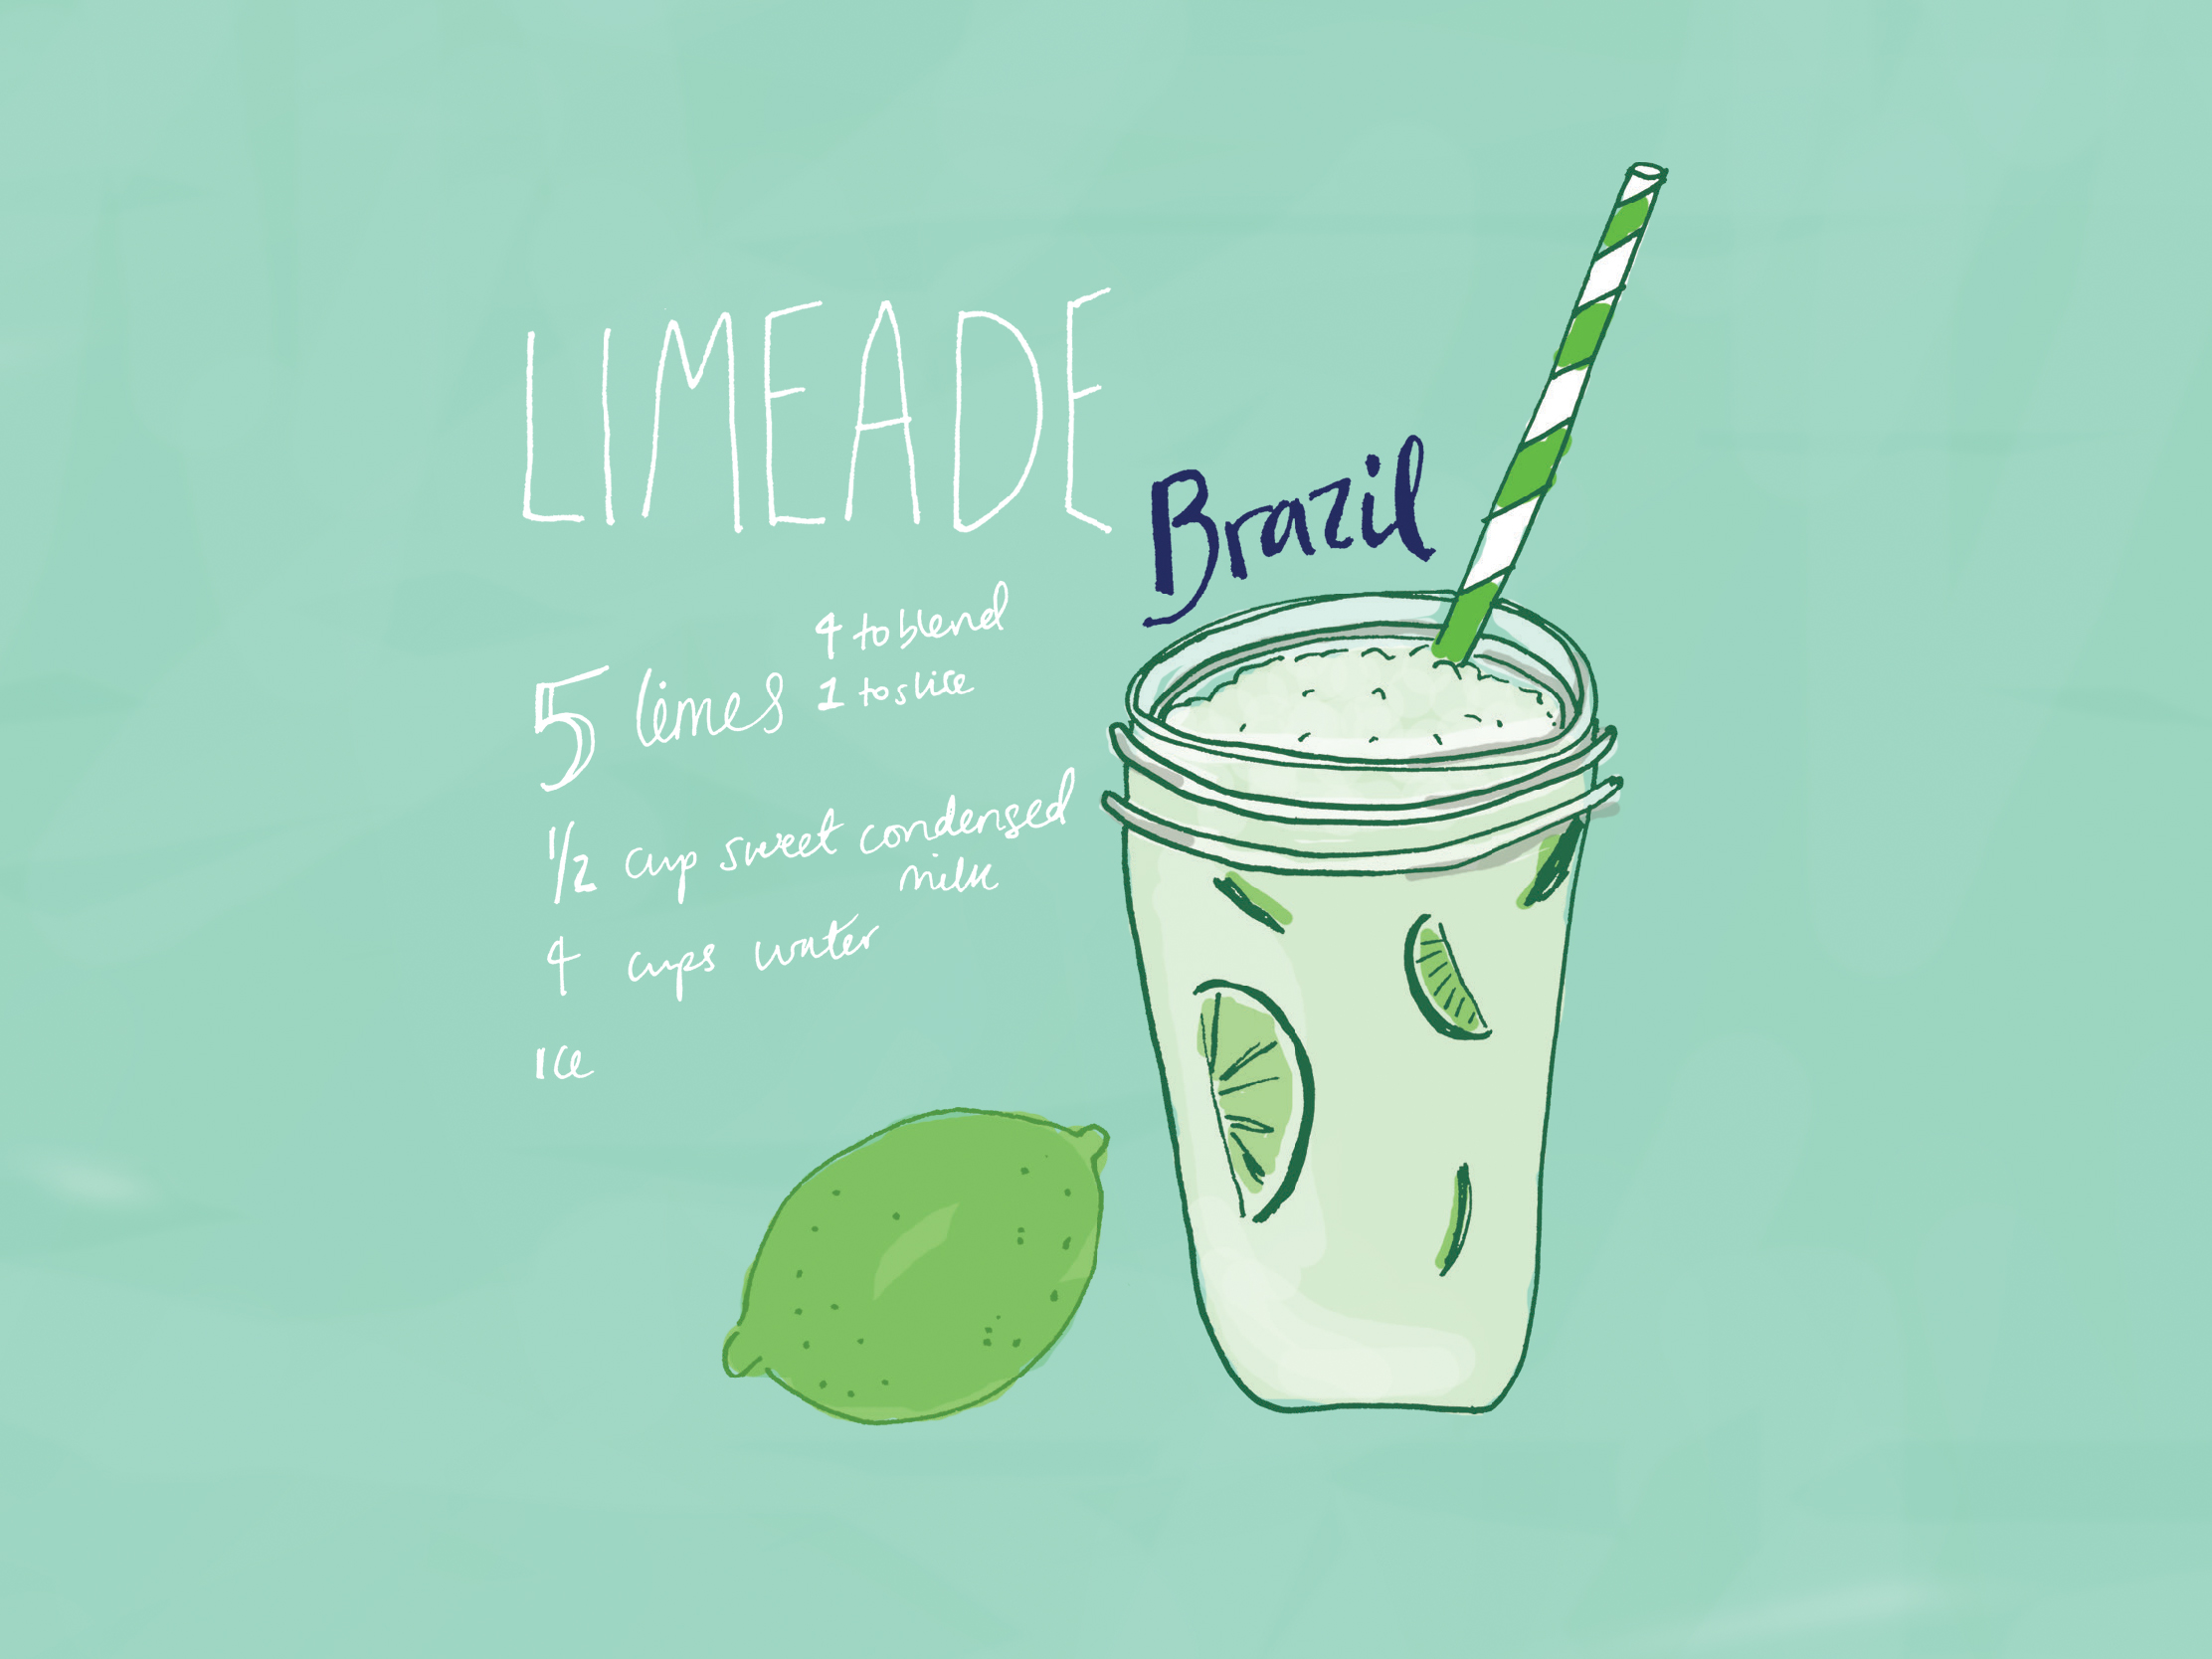 LIMEADE
Brazil
5 limes
4 to blend
1 to slice
1/2 cup sweet condensed
milk
4 cups water
Ice